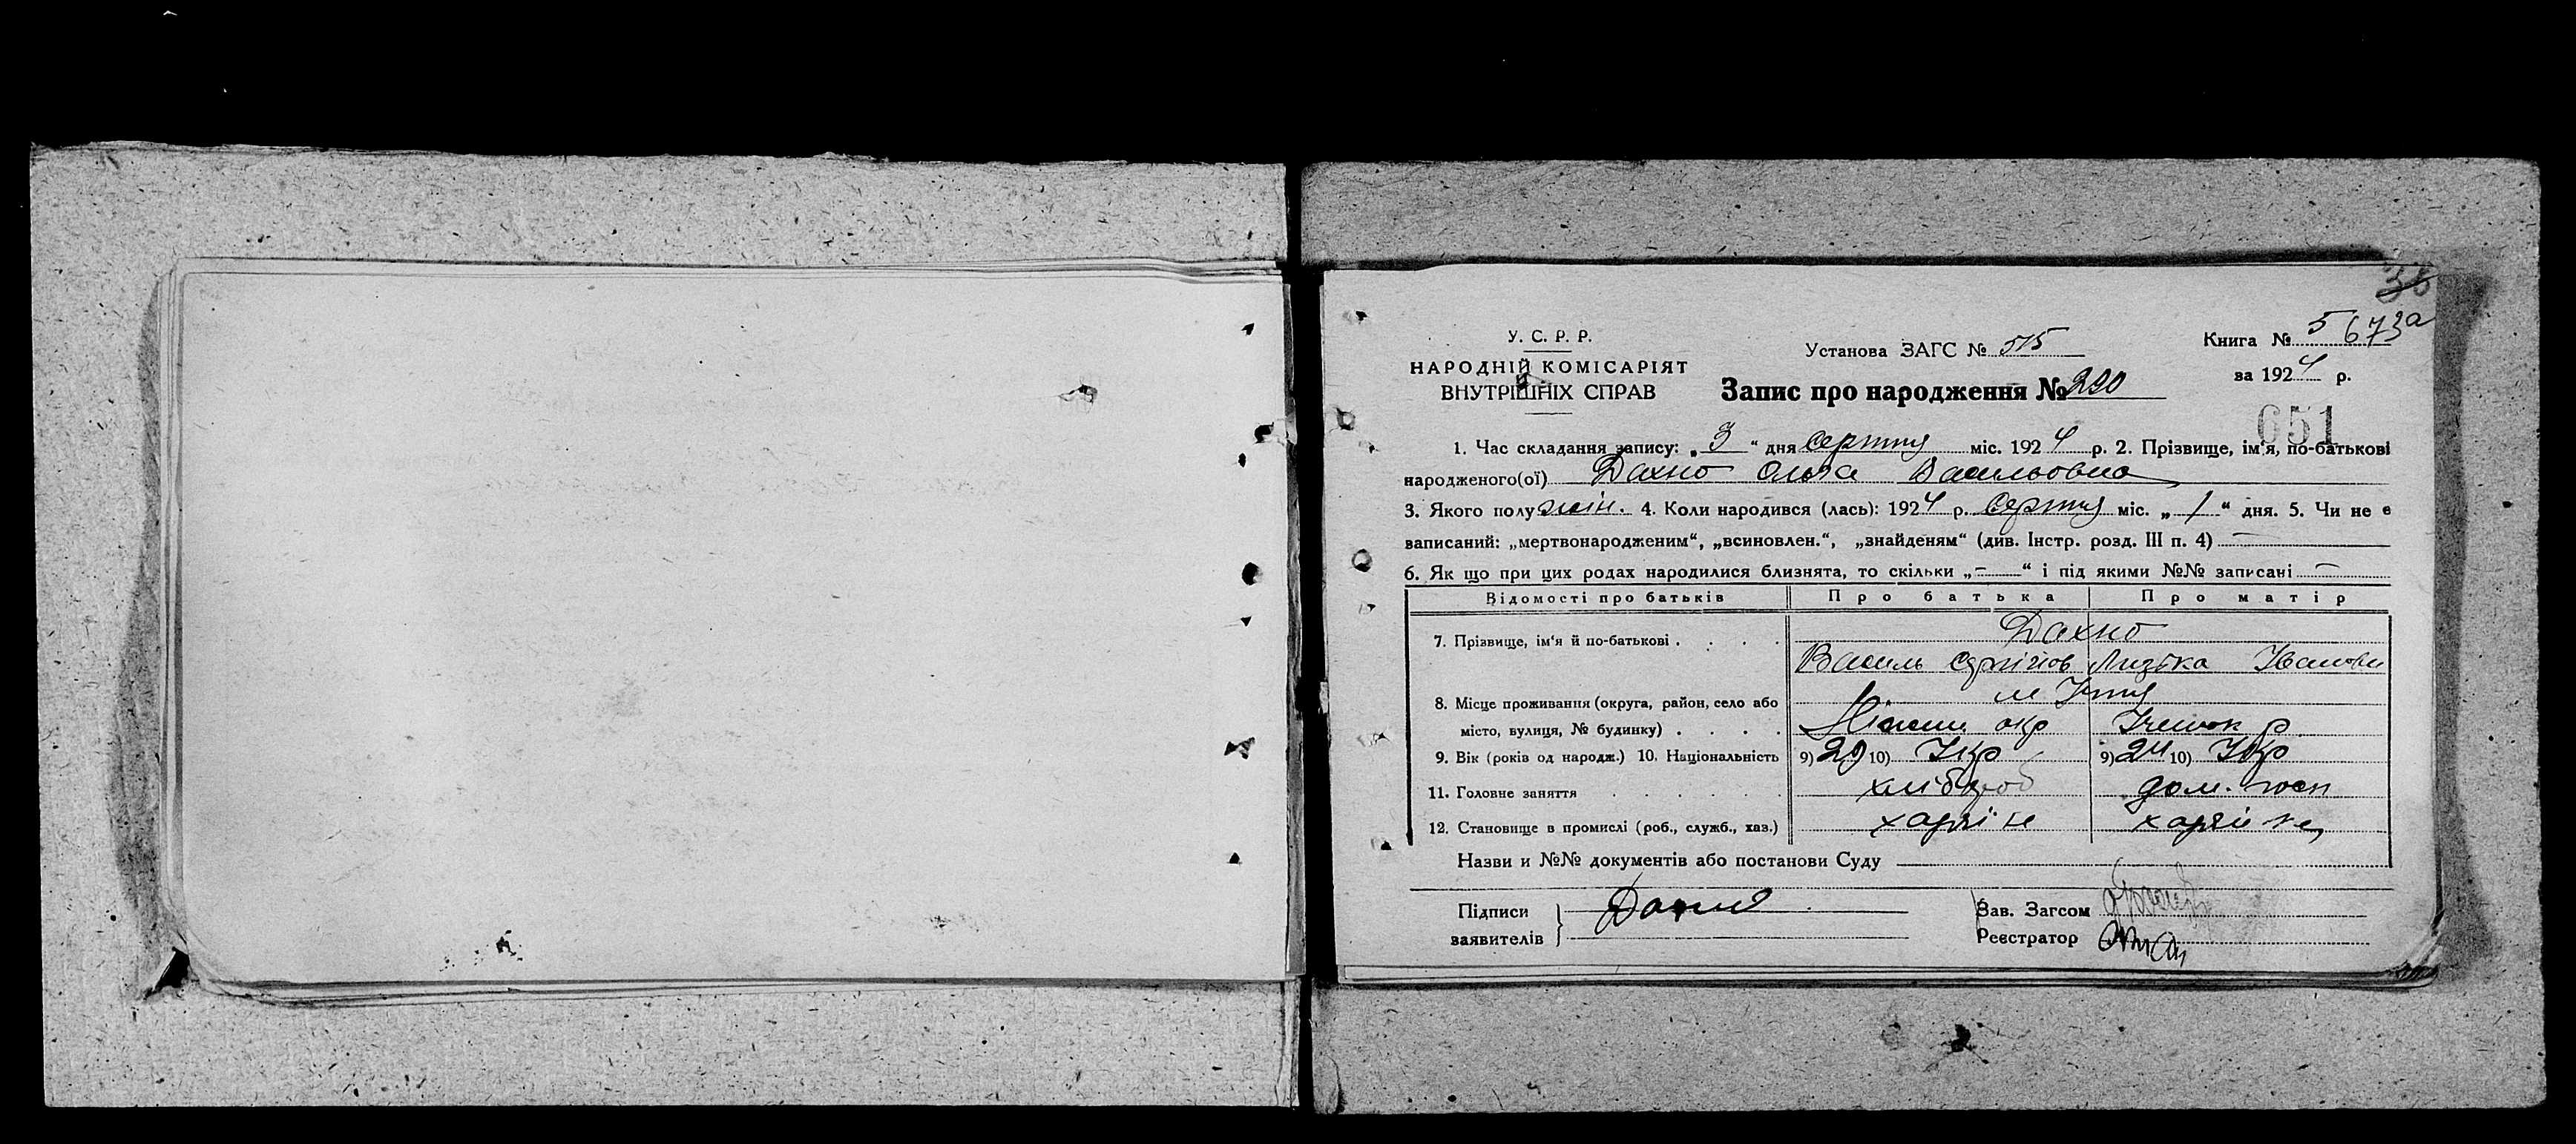 38
У. С. Р. Р.
НАРОДНІЙ КОМІСАРІЯТ
ВНУТРІШНІХ СПРАВ
Установа ЗАГС № 515
Книга № 5 673а
за 1924 р.
Запис про народження № 290
651
1. Час складання запису: „ 3 “ дня серпня міс. 1924 р. 2. Прізвище, ім'я, по-батькові
народженого(ої) Дахно Ольга Васильовна
3. Якого полу жін. 4. Коли народився (лась): 1924 р. Серпня міс. „ 1 “ дня. 5. Чи не є
записаний: „мертвонародженим“, „всиновлен.“, „знайденям“ (див. Інстр. розд. III п. 4) —
6. Як що при цих родах народилися близнята, то скільки „ — “ і під якими №№ записані —
Відомості про батьків Про батька Про матір
7. Прізвище, ім'я й по-батькові . . . . Дахно
Василь Іванови
8. Місце проживання (округа, район, село або м Ічня
місто, вулиця, № будинку) . . . . Ніжин. окр Ічнянськ р
9. Вік (років од народж.) 10. Національність 9) 29 10) Укр 9) 24 10) Укр
11. Головне заняття . . . . . . хлібороб дом. госп
12. Становище в промислі (роб., служб., хаз.) хазяїн хазяйка
Назви и №№ документів або постанови Суду
Підписи
заявителів Дахно
Зав. Загсом
Реєстратор